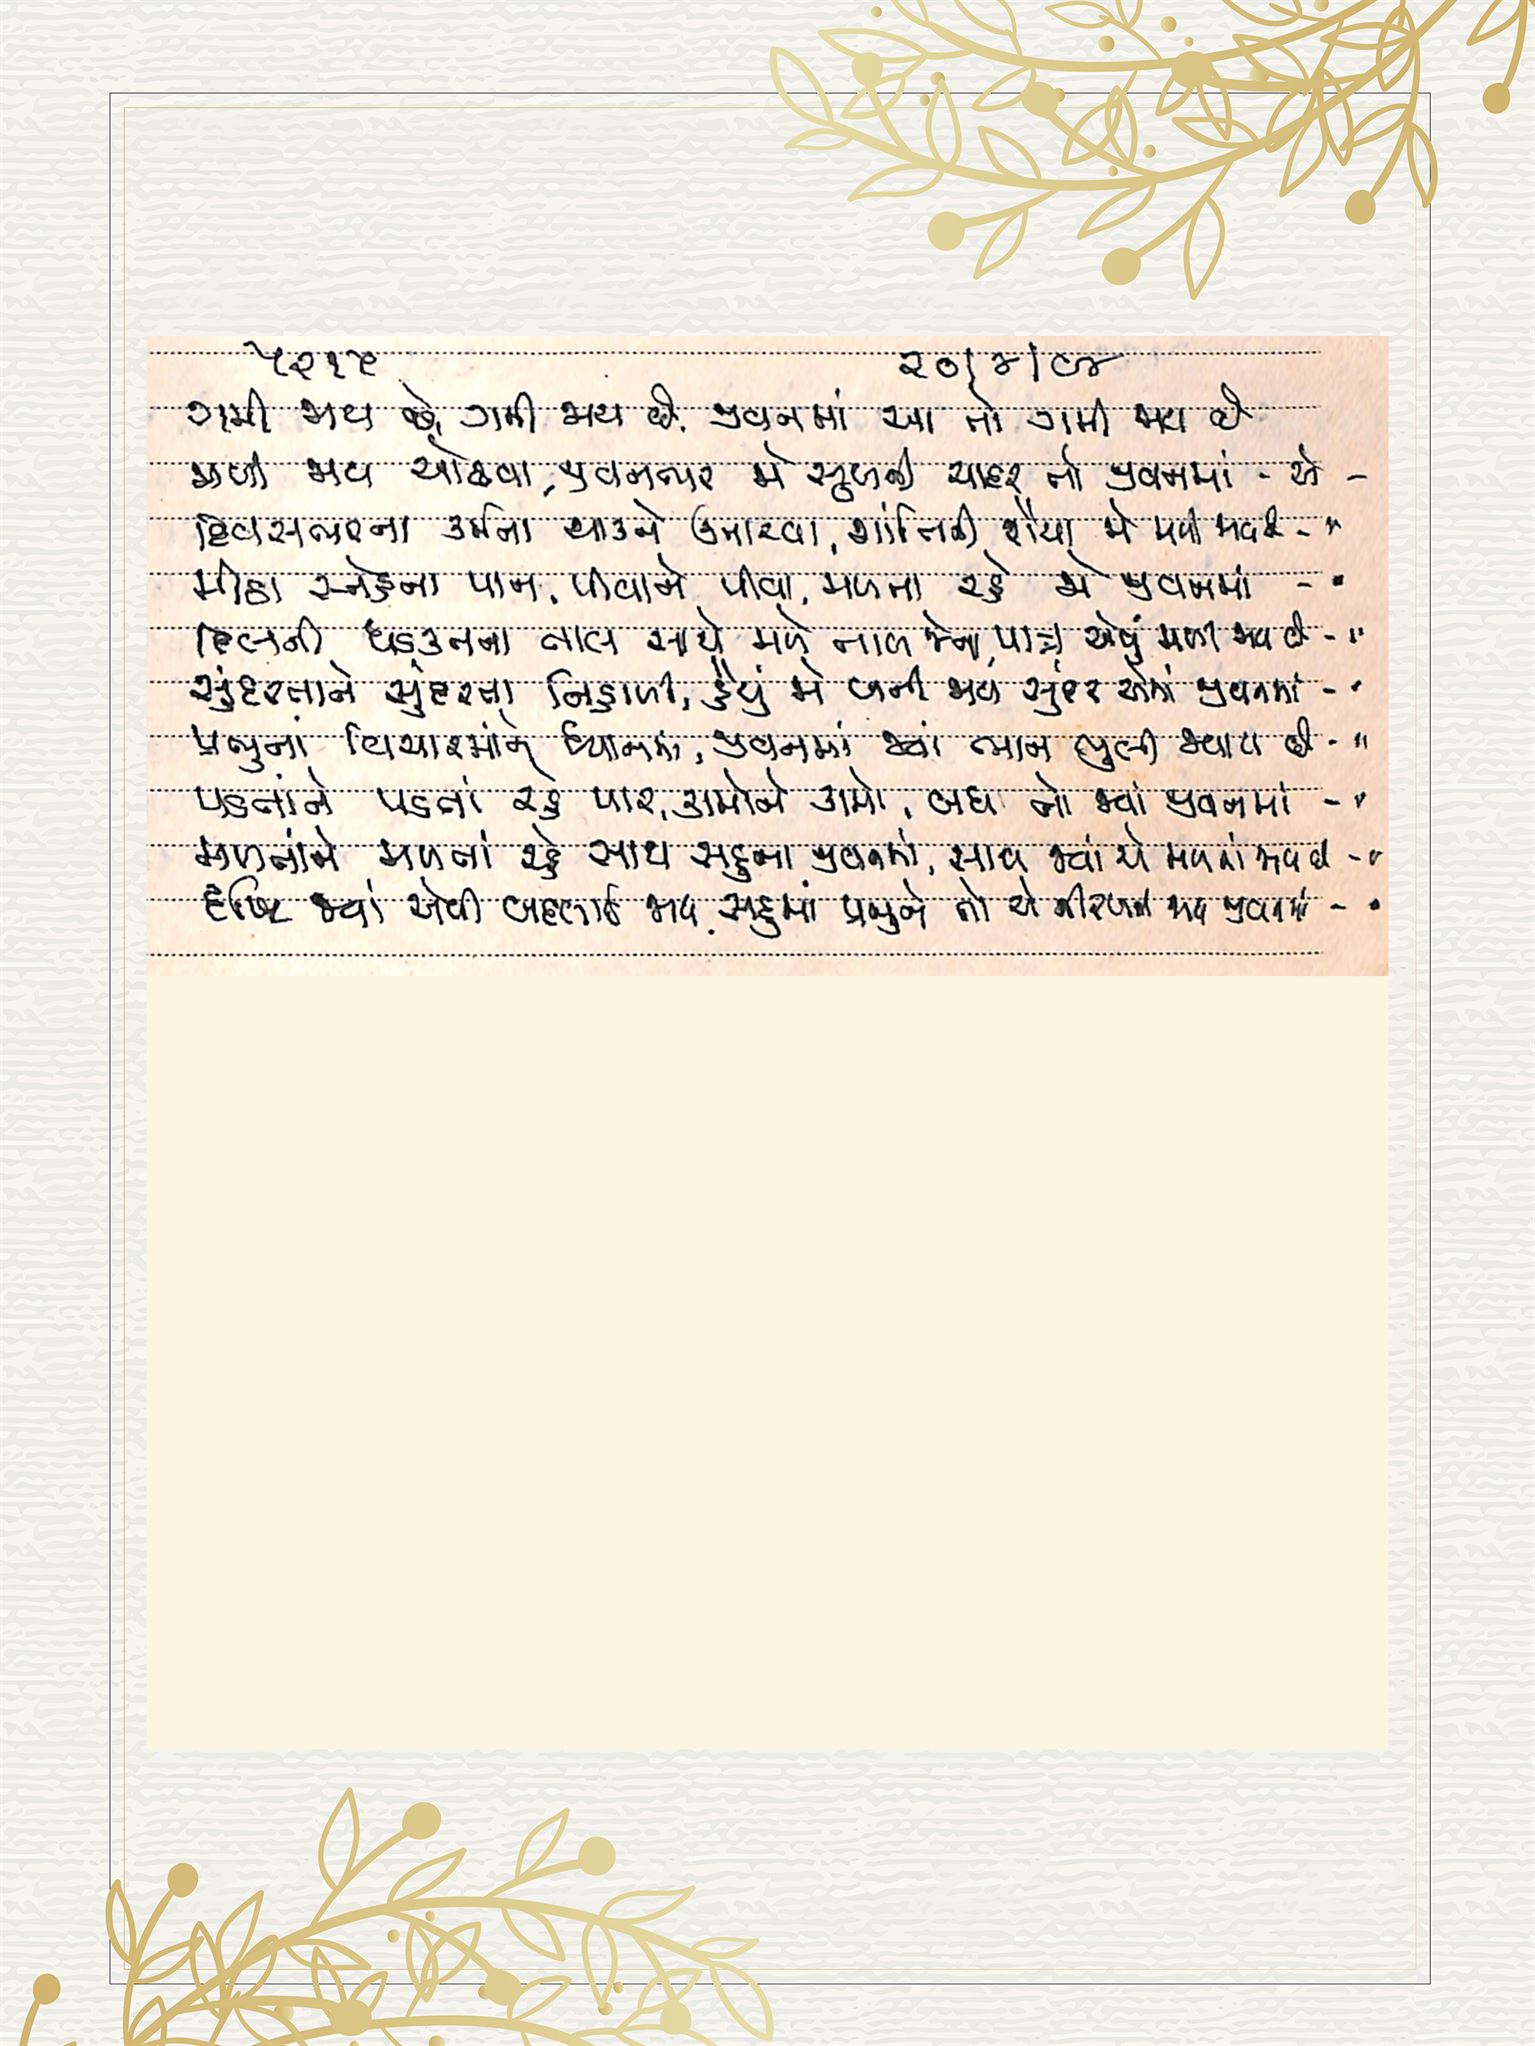 ૫૨૧૫ ૨૦/૪/૯૪
ગમી જાય છે, ગમી જાય છે, જીવનમાં આ તો ગમી જાય છે
મળી જાય ઓઢવા, જીવનભર જો સુખની ચાદર તો જીવનમાં - એ -
દિવસભરના કર્મના થાકને ઉતારવા, શાંતિની શૈયા જો મળી જાય છે - "
મીઠા સ્નેહના પાન, પીવાને પીવા, મળતા રહે જો જીવનમાં - "
દિલની ધડકનના તાલ સાથે મળે તાલ જેના, પાત્ર એવું મળી જાય છે - "
સુંદરતાને સુંદરતા નિહાળી, હૈયું જો બની જાય સુંદર એમાં જીવનમાં - "
પ્રભુનાં વિચારમાંને ધ્યાનમાં, જીવનમાં જ્યાં ભાન ભુલી જવાય છે - "
પડતાંને પડતાં રહે પાર, કામોને કામો, બધા તો જ્યાં જીવનમાં - "
મળતાંને મળતાં રહે સાથ સહુના જીવનમાં, સાથ જ્યાં એ મળતાં જાય છે - "
દૃષ્ટિ જ્યાં એવી બદલાઈ જાય, સહુમાં પ્રભુને તો એ નીરખતી જાય જીવનમાં - "